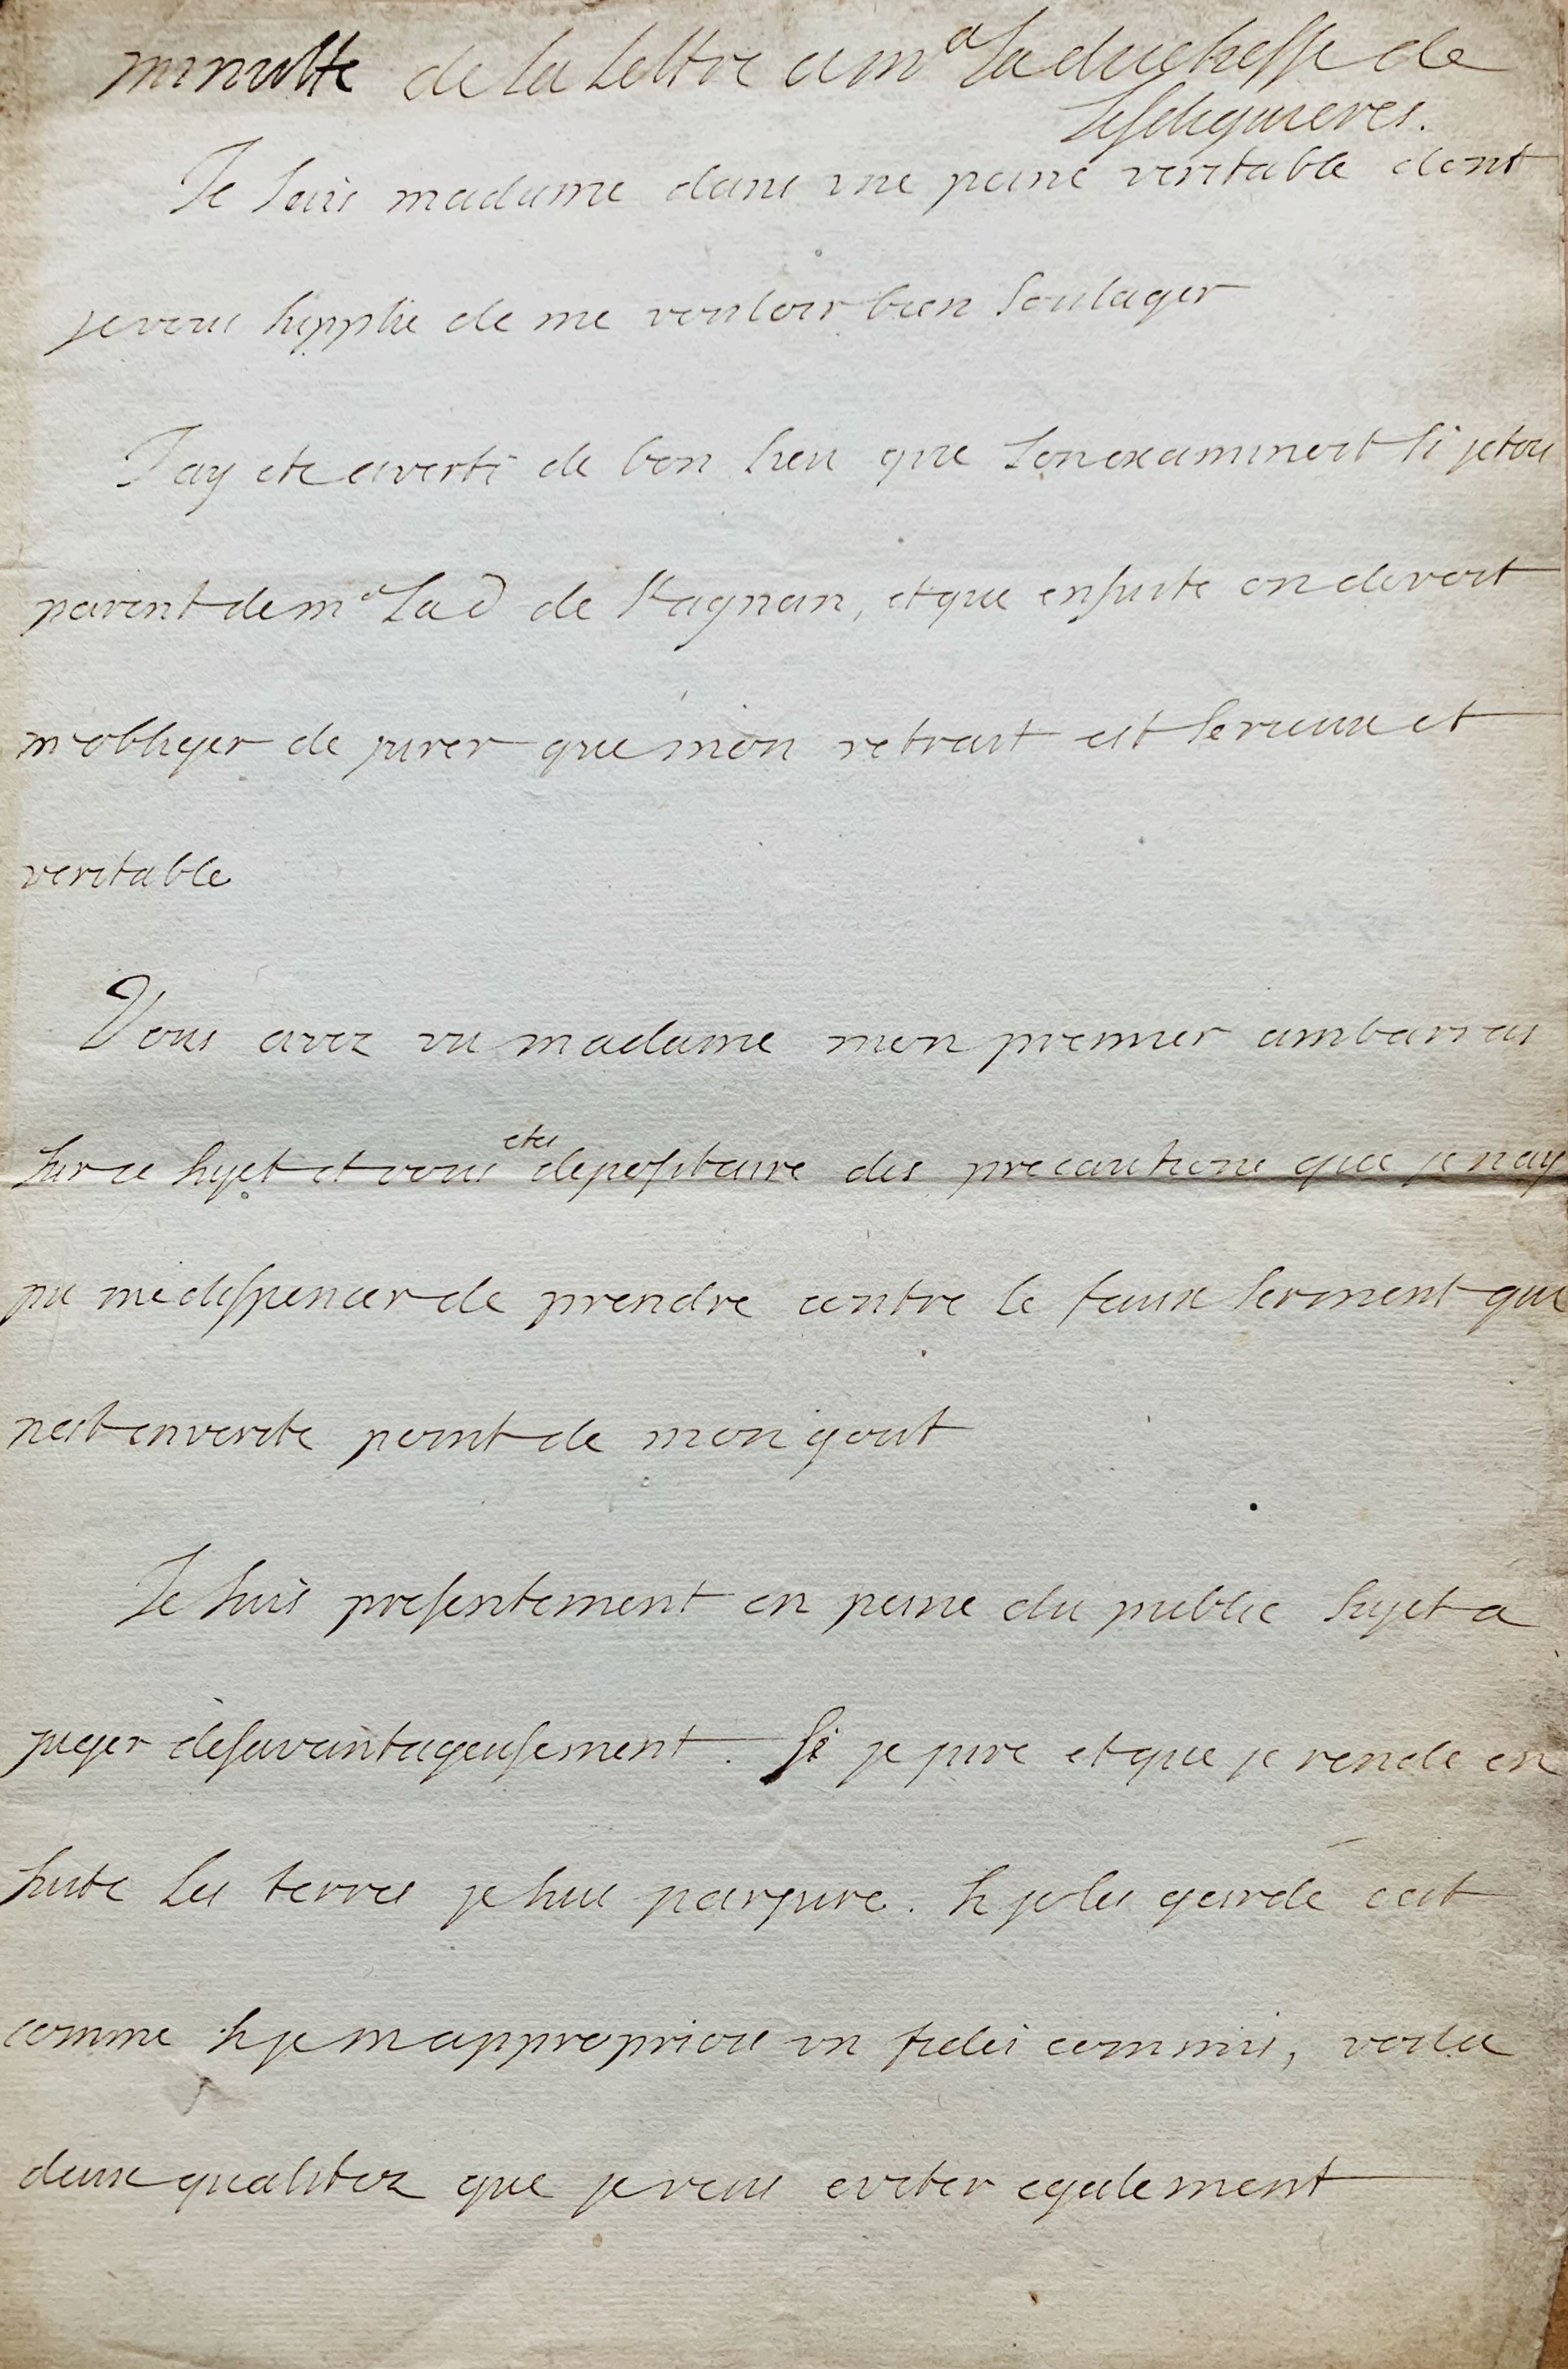 minutte de la Lettre a m^e La duchesse de
Lesdiguieres.
Je suis madame dans vne peine veritable dont
je vous supplie de me vouloir bien soulager
J'ay ete averti de bon lieu que Lon examinoit si jetois
parent de m^e La D de St agnan, et que ensuite on devoit
m'obliger de jurer que mon retrait est serieux et
veritable
Vous avez vu madame mon premier ambarras
sur ce sujet et vous etes depositaire des precautions que je nay
pu me dispencer de prendre contre le faux serment qui
nest en verite point de mon gout
Je suis presentement en peine du public sujet a
juger desavantageusement. Si je jure et que je rende en
suite Les terres je suis parjure. si je les garde cest
comme si je mappropriois un fidei commis, voila
deux qualitez que je veus eviter egalement